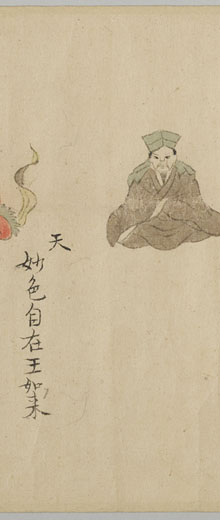 天
妙色自在王如来